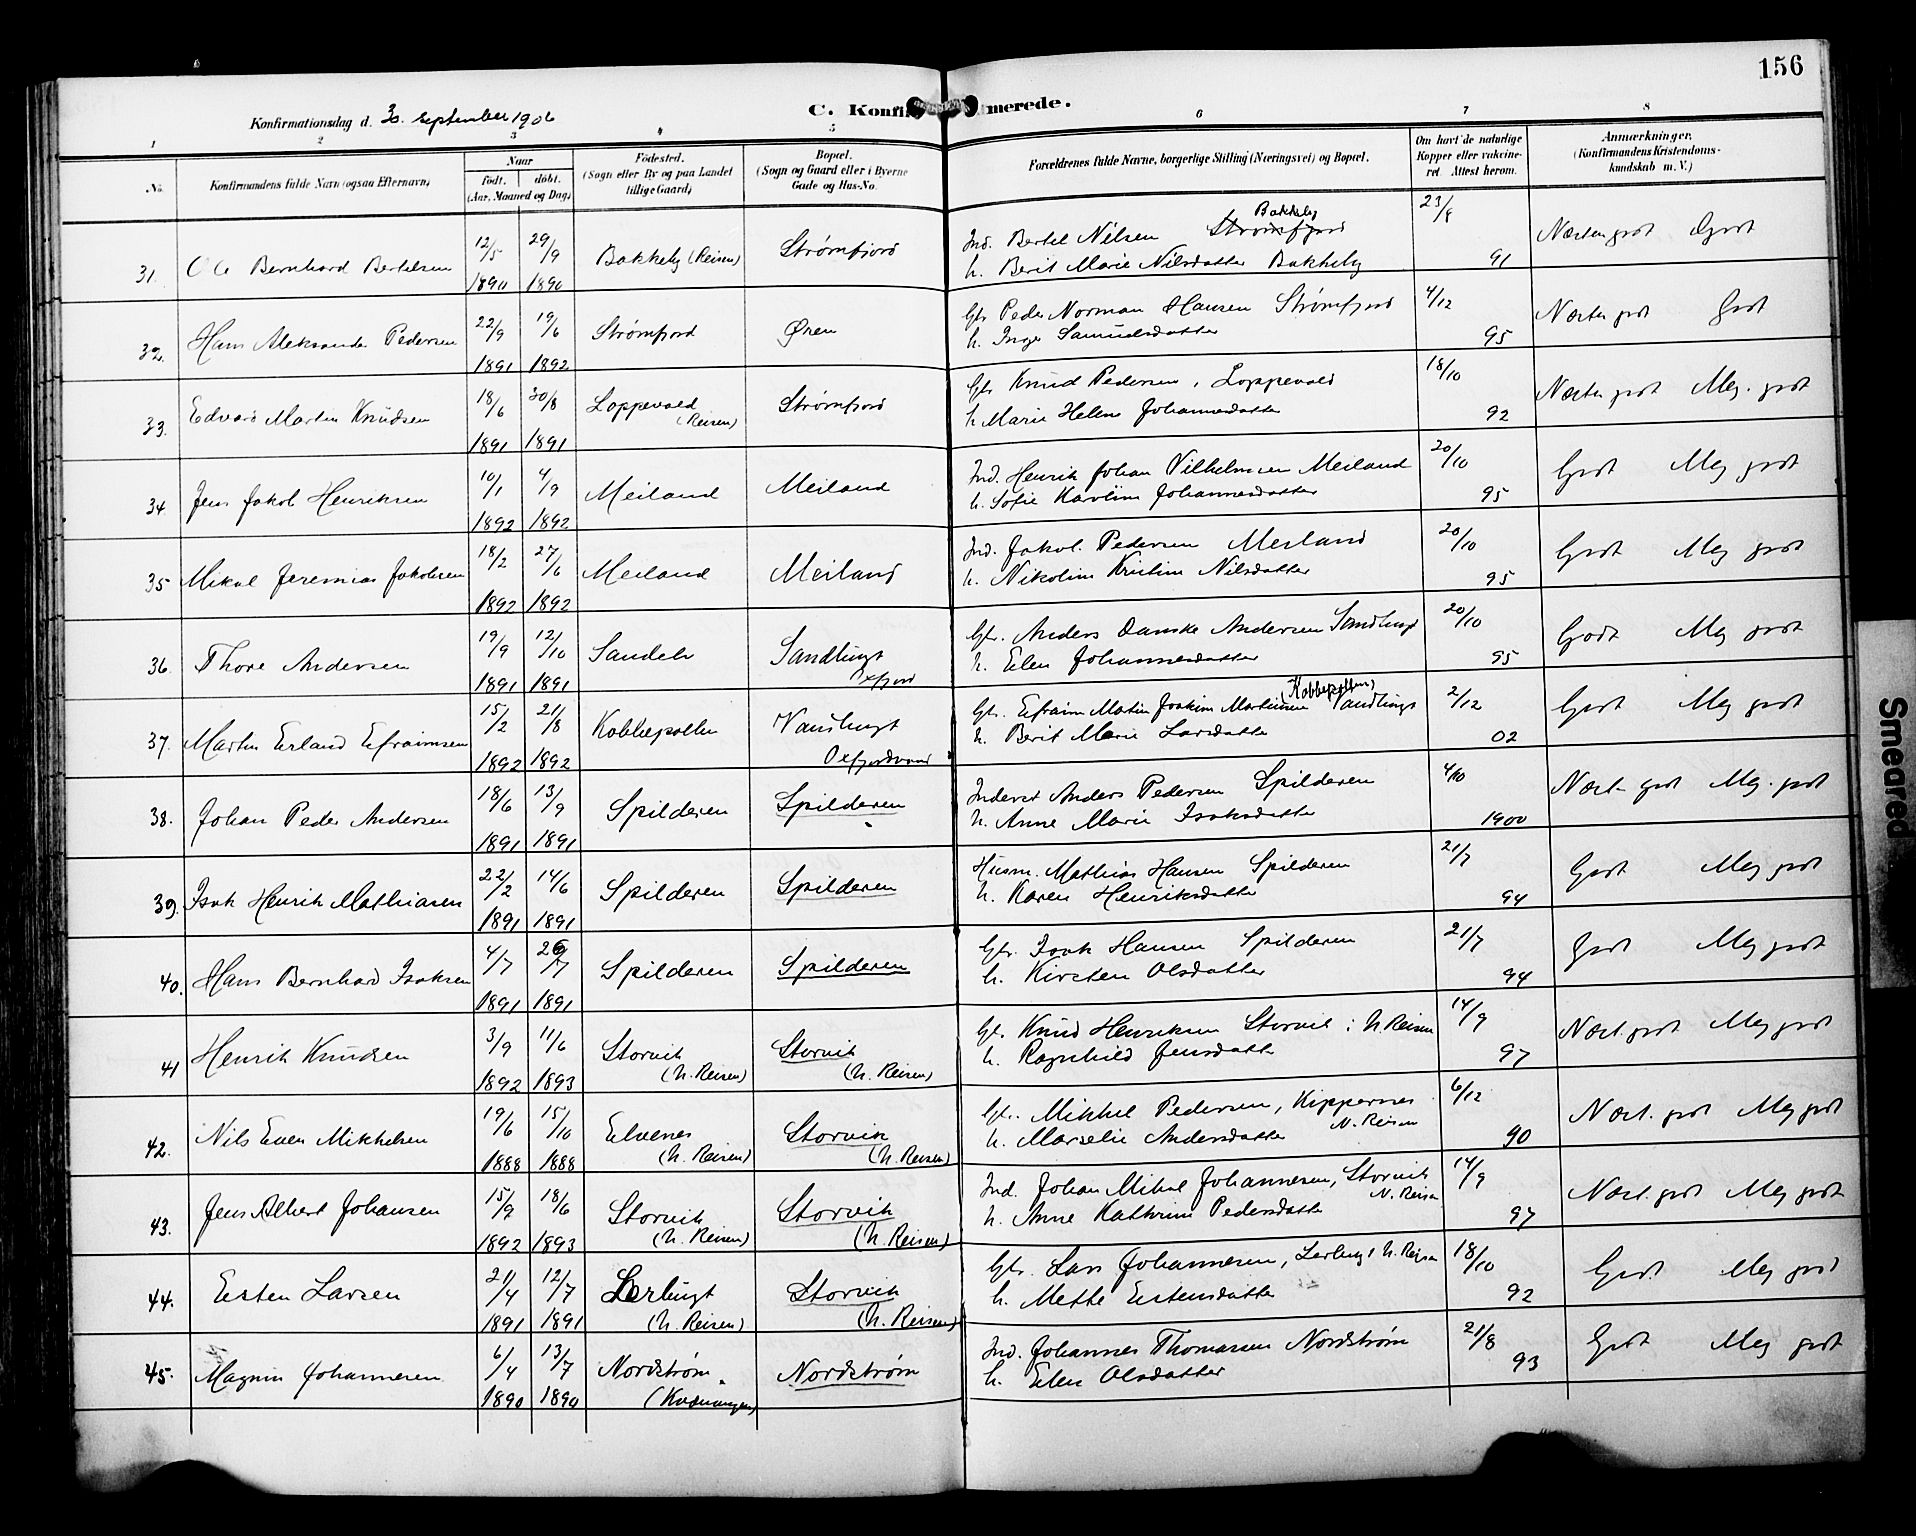 156
C. Konfirmerede.
Konfirmationsdag d. 30. september 1906
1 2 3 4 5 6 7 8
No. Konfirmandens fulde Navn (ogsaa Efternavn) Naar født. døbt. (Aar, Maaned og Dag) Fødested. (Sogn eller By og paa Landet tillige Gaard) Bopæl. (Sogn og Gaard eller i Byerne Gade og Hus-No. Forældrenes fulde Navne, borgerlige Stilling (Næringsvei) og Bopæl. Om havt de naturlige Kopper eller vakcineret. Attest herom. Anmærkninger. (Konfirmandens Kristendomskundskab m. V.)
31. Ole Bernhard Bertelsen 12/5 1890 29/9 1890 Bakkeby (Reisen) Strømfjord Ind. Bertel Nilsen Strømfjord Bakkeby
h. Berit Marie Nilsdatter Bakkeby 23/8 91 Næsten godt Godt
32. Hans Aleksander Pedersen 22/9 1891 19/6 1892 Strømfjord Øren Gbr Peder Norman Hansen Strømfjord
h. Inger Samuelsdatter 4/12 95 Næsten godt Godt
33. Edvard Martin Knudsen 18/6 1891 30/8 1891 Loppevold (Reisen) Strømfjord Gbr Knud Pedersen, Loppevold
h. Marie Helene Johannesdatter 18/10 92 Næsten godt Meg. godt
34. Jens Jakob Henriksen 10/1 1892 4/9 1892 Meiland Meiland Ind. Henrik Johan Vilhelmsen Meiland
h. Sofie Karoline Johannesdatter 20/10 95 Godt Meg godt
35 Mikal Jeremias Jakobsen 18/2 1892 27/6 1892 Meiland Meiland Ind. Jakob Pedersen Meiland
h. Nikoline Kristine Nilsdatter 20/10 95 Godt Meg godt
36. Thore Andersen 19/9 1891 12/10 1891 Sandelv Sandbugt Oxfjord Gbr. Anders Danske Andersen Sandbugt
h. Elen Johannesdatter 20/10 95 Godt Meg godt
37. Martin Erland Efraimsen 15/2 1892 21/8 1892 Kobbepollen Vandbugt Oxfjordvand Gbr. Efraim Martin Joakim Martinsen (Kobbepollen) Vandbugt
h. Berit Marie Larsdatter 2/12 02 Godt Meg godt
38. Johan Peder Andersen 18/6 1891 13/9 1891 Spilderen Spilderen Inderst Anders Pedersen Spilderen
h. Anne Marie Isaksdatter 4/10 1900 Næst. godt Meg. godt
39. Isak Henrik Mathiasen 22/2 1891 14/6 1891 Spilderen Spilderen Husm. Mathias Hansen Spilderen
h. Karen Henriksdatter 21/7 94 Godt Meg godt
40. Hans Bernhard Isaksen 4/7 1891 26/7 1891 Spilderen Spilderen Gbr. Isak Hansen Spilderen
h. Kirsten Olsdatter 21/7 94 Godt Meg godt
41 Henrik Knudsen 3/9 1892 11/6 1893 Storvik (N. Reisen) Storvik (N. Reisen) Gbr. Knud Henriksen Storvik i N Reisen
h. Ragnhild Jensdatter 14/9 97 Næst. godt Meg godt
42. Nils Even Mikkelsen 19/6 1888 15/10 1888 Elvenes (N. Reisen) Storvik (N. Reisen) Gbr. Mikkel Pedersen, Kippernes N. Reisen
h. Marselie Andersdatter 6/12 90 Næst. godt Meg godt
43. Jens Albert Johansen 15/9 1892 18/6 1893 Storvik (N. Reisen) Storvik (N. Reisen) Ind. Johan Mikal Johannesen, Storvik N. Reisen
h. Anne Kathrine Pedersdatter 14/9 97 Næst. godt Meg godt
44. Eisten Larsen 21/4 1891 12/7 1891 Lerbugt (N. Reisen) Storvik (N. Reisen) Gbr. Lars Johannesen, Lerbugt N. Reisen
h. Mette Eistensdatter 18/10 92 Godt Meg godt
45. Magnus Johannesen 6/4 1890 13/7 1890 Nordstrøm (Kvænangen) Nordstrøm Ind. Johannes Thomasen Nordstrøm
h. Elen Olsdatter 21/8 93 Godt Meg godt
Smeared.